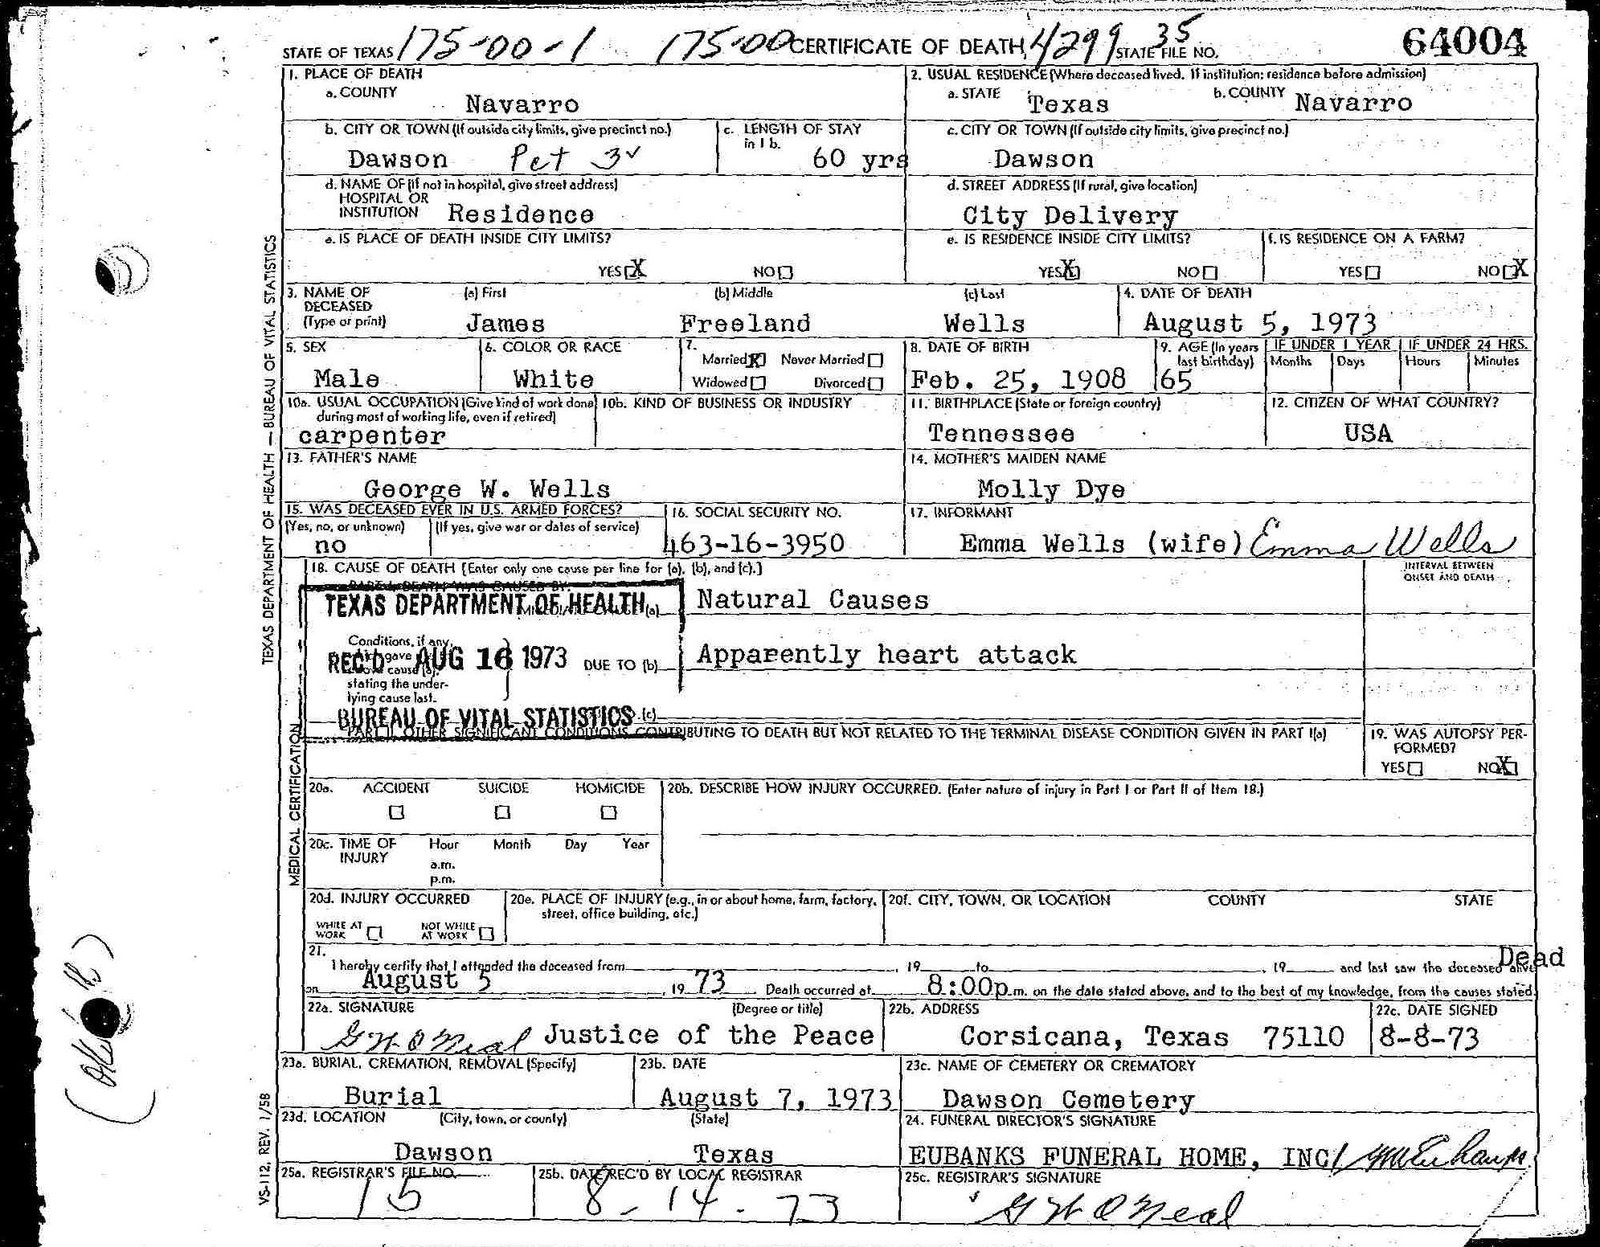 STATE OF TEXAS 175-00-1 175-00 CERTIFICATE OF DEATH 4299 STATE FILE NO. 35 64004
1. PLACE OF DEATH
a. COUNTY Navarro
2. USUAL RESIDENCE (Where deceased lived. If institution: residence before admission)
a. STATE Texas b. COUNTY Navarro
b. CITY OR TOWN (If outside city limits, give precinct no.) Dawson Pct 3
c. LENGTH OF STAY in 1b. 60 yrs
c. CITY OR TOWN (If outside city limits, give precinct no.) Dawson
d. NAME OF (If not in hospital, give street address) HOSPITAL OR INSTITUTION Residence
d. STREET ADDRESS (If rural, give location) City Delivery
e. IS PLACE OF DEATH INSIDE CITY LIMITS? YES X NO
e. IS RESIDENCE INSIDE CITY LIMITS? YES X NO
f. IS RESIDENCE ON A FARM? YES NO X
3. NAME OF DECEASED (Type or print) (a) First James (b) Middle Freeland (c) Last Wells
4. DATE OF DEATH August 5, 1973
5. SEX Male
6. COLOR OR RACE White
7. Married X Never Married Widowed Divorced
8. DATE OF BIRTH Feb. 25, 1908
9. AGE (In years last birthday) 65 IF UNDER 1 YEAR Months Days IF UNDER 24 HRS. Hours Minutes
10a. USUAL OCCUPATION (Give kind of work done during most of working life, even if retired) carpenter
10b. KIND OF BUSINESS OR INDUSTRY
11. BIRTHPLACE (State or foreign country) Tennessee
12. CITIZEN OF WHAT COUNTRY? USA
13. FATHER'S NAME George W. Wells
14. MOTHER'S MAIDEN NAME Molly Dye
15. WAS DECEASED EVER IN U.S. ARMED FORCES? (Yes, no, or unknown) no (If yes, give war or dates of service)
16. SOCIAL SECURITY NO. 463-16-3950
17. INFORMANT Emma Wells (wife) Emma Wells
18. CAUSE OF DEATH (Enter only one cause per line for (a), (b), and (c).)
INTERVAL BETWEEN ONSET AND DEATH
PART I. DEATH WAS CAUSED BY:
TEXAS DEPARTMENT OF HEALTH
(a) Natural Causes
Conditions, if any, which gave cause (a), stating the underlying cause last.
REC'D AUG 16 1973
DUE TO (b) Apparently heart attack
BUREAU OF VITAL STATISTICS
(c)
PART II. OTHER SIGNIFICANT CONDITIONS CONTRIBUTING TO DEATH BUT NOT RELATED TO THE TERMINAL DISEASE CONDITION GIVEN IN PART I(a)
19. WAS AUTOPSY PERFORMED? YES NO X
20a. ACCIDENT SUICIDE HOMICIDE
20b. DESCRIBE HOW INJURY OCCURRED. (Enter nature of injury in Part I or Part II of Item 18.)
20c. TIME OF INJURY Hour Month Day Year
a.m.
p.m.
20d. INJURY OCCURRED WHILE AT WORK NOT WHILE AT WORK
20e. PLACE OF INJURY (e.g., in or about home, farm, factory, street, office building, etc.)
20f. CITY, TOWN, OR LOCATION COUNTY STATE
21. I hereby certify that I attended the deceased from , 19 to , 19 and last saw the deceased alive Dead
on August 5 , 19 73 Death occurred at 8:00p m. on the date stated above, and to the best of my knowledge, from the causes stated.
22a. SIGNATURE G W O'Neal (Degree or title) Justice of the Peace
22b. ADDRESS Corsicana, Texas 75110
22c. DATE SIGNED 8-8-73
23a. BURIAL, CREMATION, REMOVAL (Specify) Burial
23b. DATE August 7, 1973
23c. NAME OF CEMETERY OR CREMATORY Dawson Cemetery
23d. LOCATION (City, town, or county) Dawson (State) Texas
24. FUNERAL DIRECTOR'S SIGNATURE EUBANKS FUNERAL HOME, INC
25a. REGISTRAR'S FILE NO. 15
25b. DATE REC'D BY LOCAL REGISTRAR 8-14-73
25c. REGISTRAR'S SIGNATURE G W O'Neal
TEXAS DEPARTMENT OF HEALTH — BUREAU OF VITAL STATISTICS
MEDICAL CERTIFICATION
VS-112, REV. 1/58